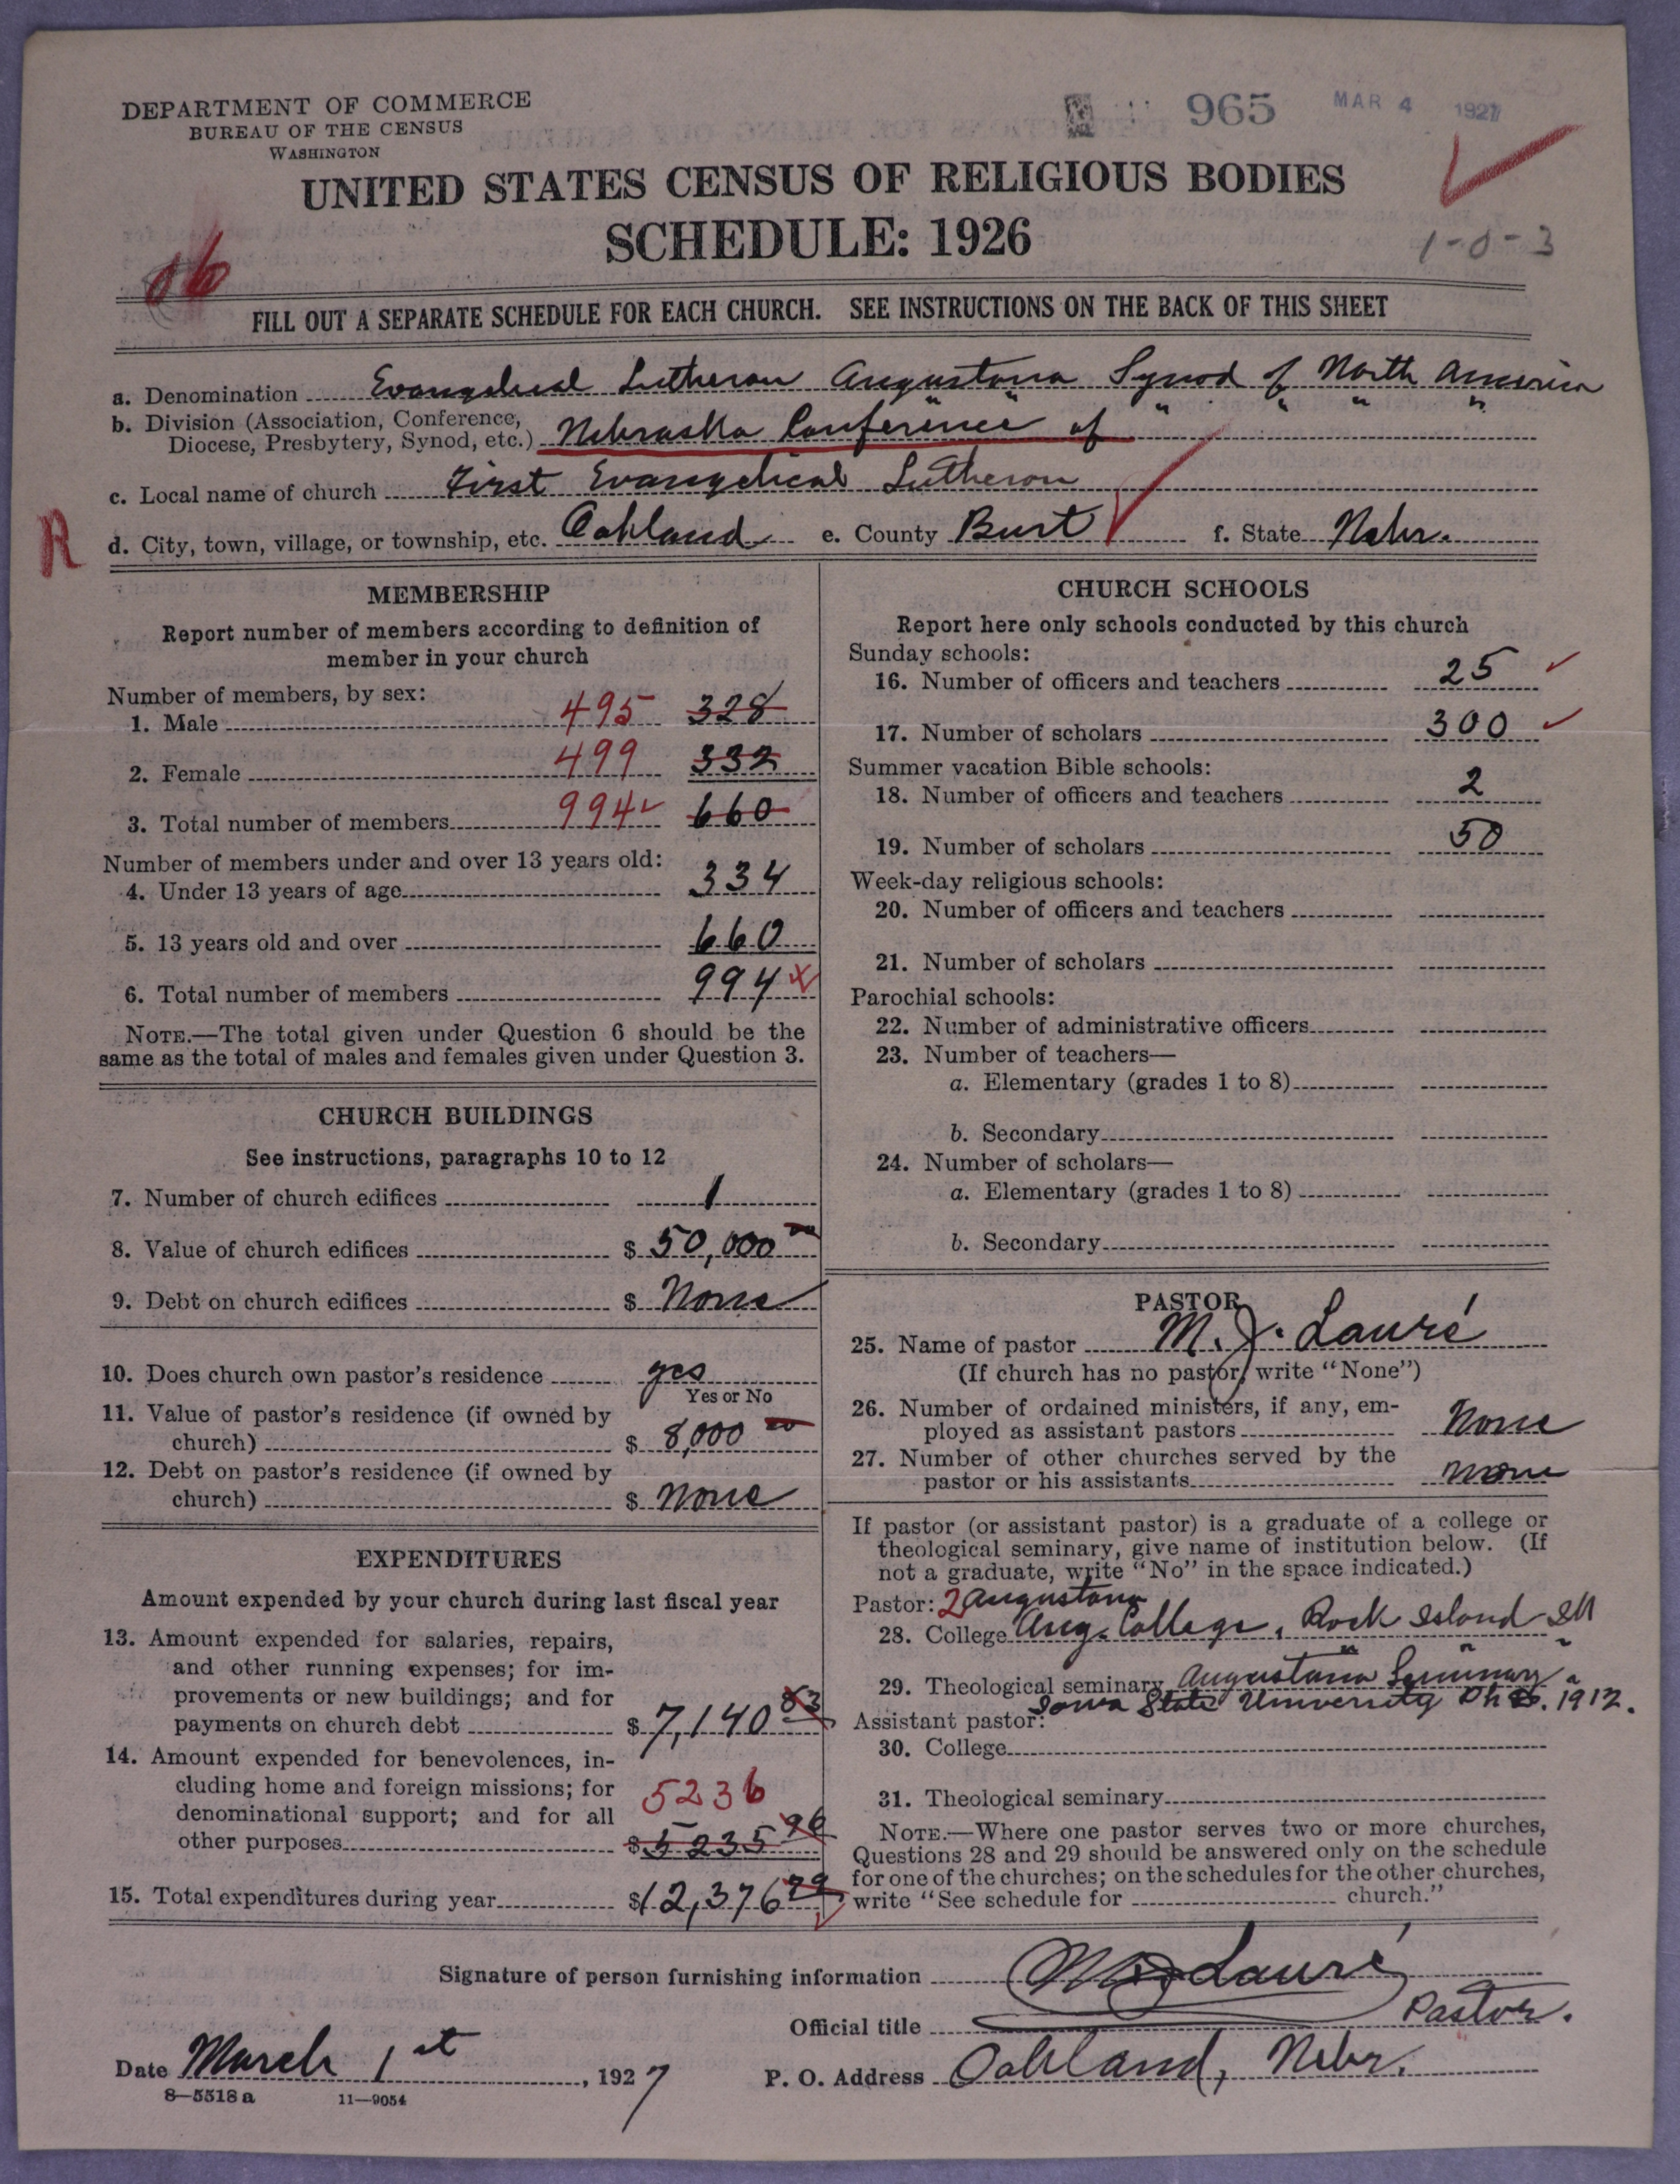 DEPARTMENT OF COMMERCE
BUREAU OF THE CENSUS
WASHINGTON
965 MAR 4 1927
UNITED STATES CENSUS OF RELIGIOUS BODIES
SCHEDULE: 1926
1-0-3
FILL OUT A SEPARATE SCHEDULE FOR EACH CHURCH. SEE INSTRUCTIONS ON THE BACK OF THIS SHEET
a. Denomination Evangelical Lutheran Augustana Synod of North America
b. Division (Association, Conference,
Diocese, Presbytery, Synod, etc.) Nebraska Conference of " " " " " "
c. Local name of church First Evangelical Lutheran
R
d. City, town, village, or township, etc. Oakland e. County Burt f. State Nebr.
MEMBERSHIP
Report number of members according to definition of
member in your church
Number of members, by sex:
1. Male 495 328
2. Female 499 332
3. Total number of members 994 660
Number of members under and over 13 years old:
4. Under 13 years of age 334
5. 13 years old and over 660
6. Total number of members 994
NOTE.—The total given under Question 6 should be the
same as the total of males and females given under Question 3.
CHURCH BUILDINGS
See instructions, paragraphs 10 to 12
7. Number of church edifices 1
8. Value of church edifices $ 50,000 00
9. Debt on church edifices $ None
10. Does church own pastor's residence yes
Yes or No
11. Value of pastor's residence (if owned by
church) $ 8,000 00
12. Debt on pastor's residence (if owned by
church) $ None
EXPENDITURES
Amount expended by your church during last fiscal year
13. Amount expended for salaries, repairs,
and other running expenses; for im-
provements or new buildings; and for
payments on church debt $ 7,140 83
14. Amount expended for benevolences, in-
cluding home and foreign missions; for
denominational support; and for all
other purposes 5236 $ 5235 96
15. Total expenditures during year $12,376 79
CHURCH SCHOOLS
Report here only schools conducted by this church
Sunday schools:
16. Number of officers and teachers 25
17. Number of scholars 300
Summer vacation Bible schools:
18. Number of officers and teachers 2
19. Number of scholars 50
Week-day religious schools:
20. Number of officers and teachers
21. Number of scholars
Parochial schools:
22. Number of administrative officers
23. Number of teachers—
a. Elementary (grades 1 to 8)
b. Secondary
24. Number of scholars—
a. Elementary (grades 1 to 8)
b. Secondary
PASTOR
25. Name of pastor M. J. Lauré
(If church has no pastor, write "None")
26. Number of ordained ministers, if any, em-
ployed as assistant pastors None
27. Number of other churches served by the
pastor or his assistants None
If pastor (or assistant pastor) is a graduate of a college or
theological seminary, give name of institution below. (If
not a graduate, write "No" in the space indicated.)
Pastor: 2 Augustana
28. College Aug. College, Rock Island Ill
29. Theological seminary Augustana Seminary " " "
Iowa State University 1912.
Assistant pastor:
30. College
31. Theological seminary
NOTE.—Where one pastor serves two or more churches,
Questions 28 and 29 should be answered only on the schedule
for one of the churches; on the schedules for the other churches,
write "See schedule for church."
Signature of person furnishing information M J Lauré
Official title Pastor.
Date March 1st, 1927 P. O. Address Oakland, Nebr.
8—5518 a 11—9054